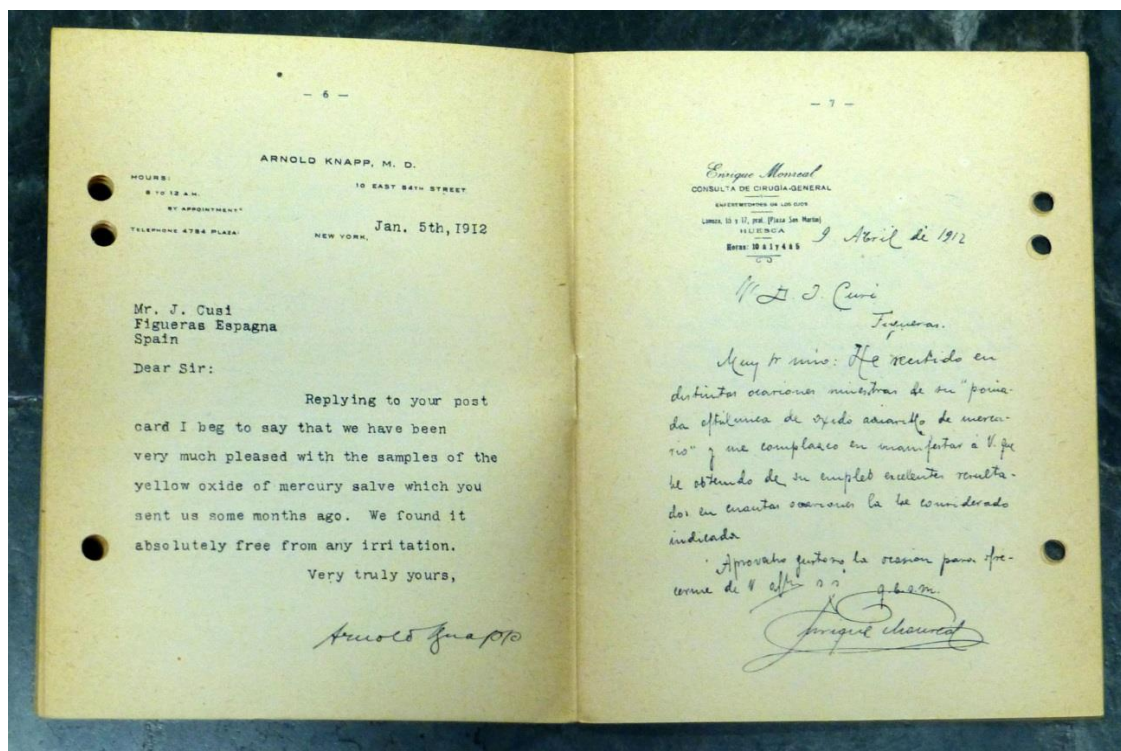 — 6 —
ARNOLD KNAPP, M. D.
HOURS:
10 EAST 54TH STREET
BY APPOINTMENT
TELEPHONE 4784 PLAZA
NEW YORK, Jan. 5th, 1912
Mr. J. Cusi
Figueras Espagna
Spain
Dear Sir:
Replying to your post
card I beg to say that we have been
very much pleased with the samples of the
yellow oxide of mercury salve which you
sent us some months ago. We found it
absolutely free from any irritation.
Very truly yours,
Arnold Knapp
— 7 —
Enrique Monreal
CONSULTA DE CIRUGÍA-GENERAL
ENFERMEDADES DE LOS OJOS
15 y 17, pral. (Plaza San Martín)
HUESCA
Horas: 10 á 1 y 4 á 6
9 Abril de 1912
J. Cusi
Figueras.
Muy Sr mio: He recibido en
distintas ocasiones muestras de su "poma-
da oftálmica de oxido amarillo de mercu-
rio" y me complazco en manifestar á V. que
he obtenido de su empleo excelentes resulta-
dos en cuantas ocasiones la he considerado
indicada
Aprovecho gustoso la ocasion para ofre-
cerme de V q.b.s.m.
Enrique Monreal